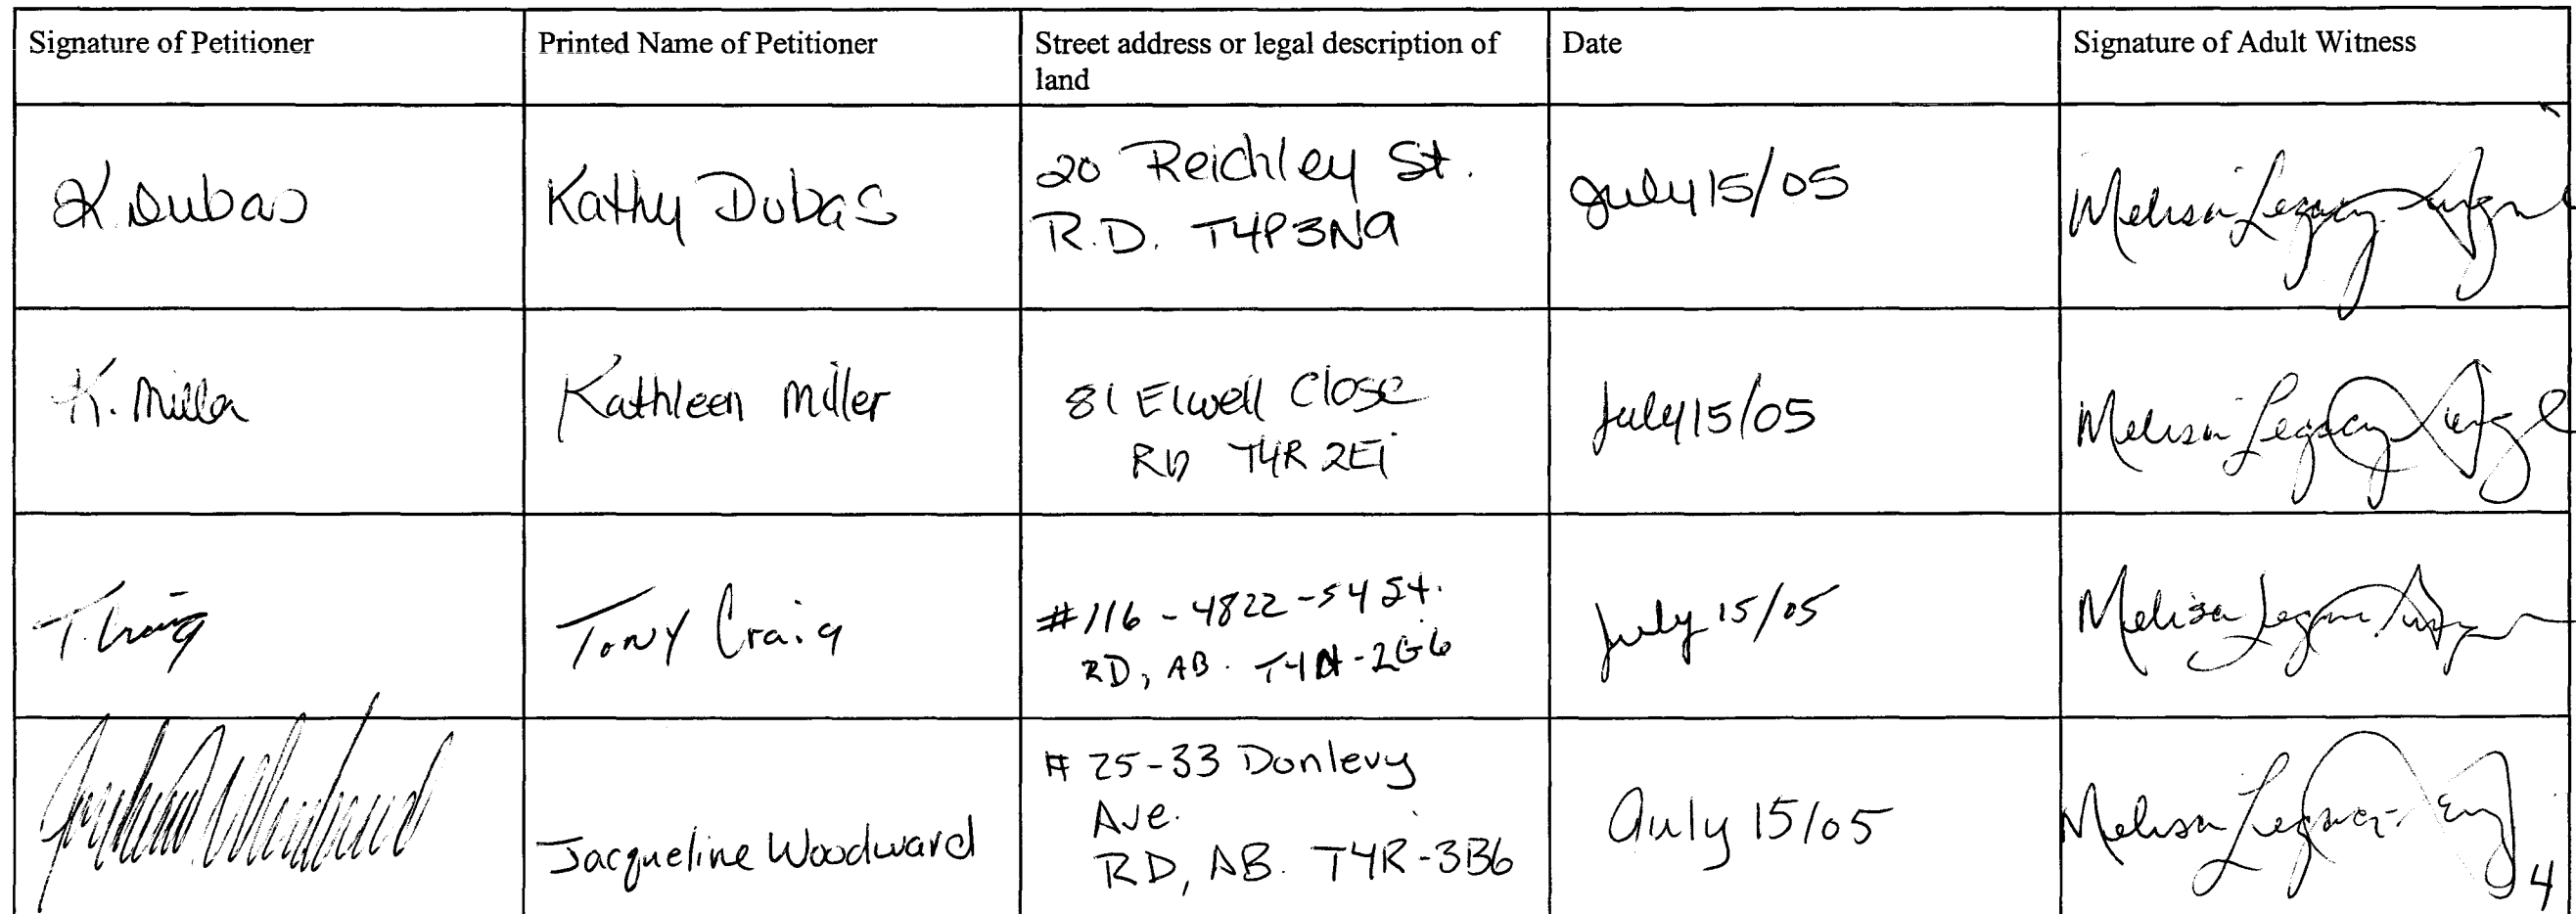 Signature of Petitioner
Printed Name of Petitioner
Street address or legal description of
land
Date
Signature of Adult Witness
K. Dubas
Kathy Dubas
20 Reichley St.
R.D. T4P3N9
July 15/05
Melisa Legacy
K. Miller
Kathleen Miller
81 Elwell Close
RD T4R 2E1
July 15/05
Melisa Legacy
T. Craig
Tony Craig
#116 - 4822 - 54 St.
RD, AB. T4N-2G6
July 15/05
Melisa
Jacqueline Woodward
# 25-33 Donlevy
Ave.
RD, AB. T4R-3B6
July 15/05
Melisa
4